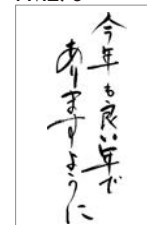 今年も良い年で
ありますように